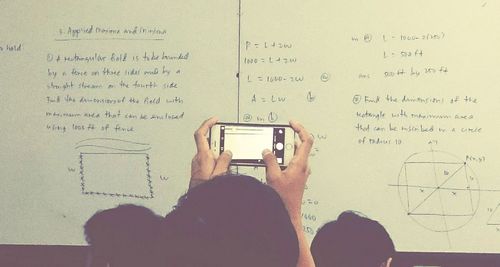 3. Applied Maxima and Minima
hold
① A rectangular field is to be bounded
by a fence on three sides and by a
straight stream on the fourth side
Find the dimensions of the field with
maximum area that can be enclosed
using 1000 ft of fence
w
w
P = L + 2w
1000 = L + 2w
L = 1000 - 2w
A = LW
L = 1000 - 2(250)
L = 500 ft
ans 500 ft by 250 ft
② Find the dimensions of the
rectangle with maximum area
that can be inscribed in a circle
of radius 10
P(x,y)
10
x
x